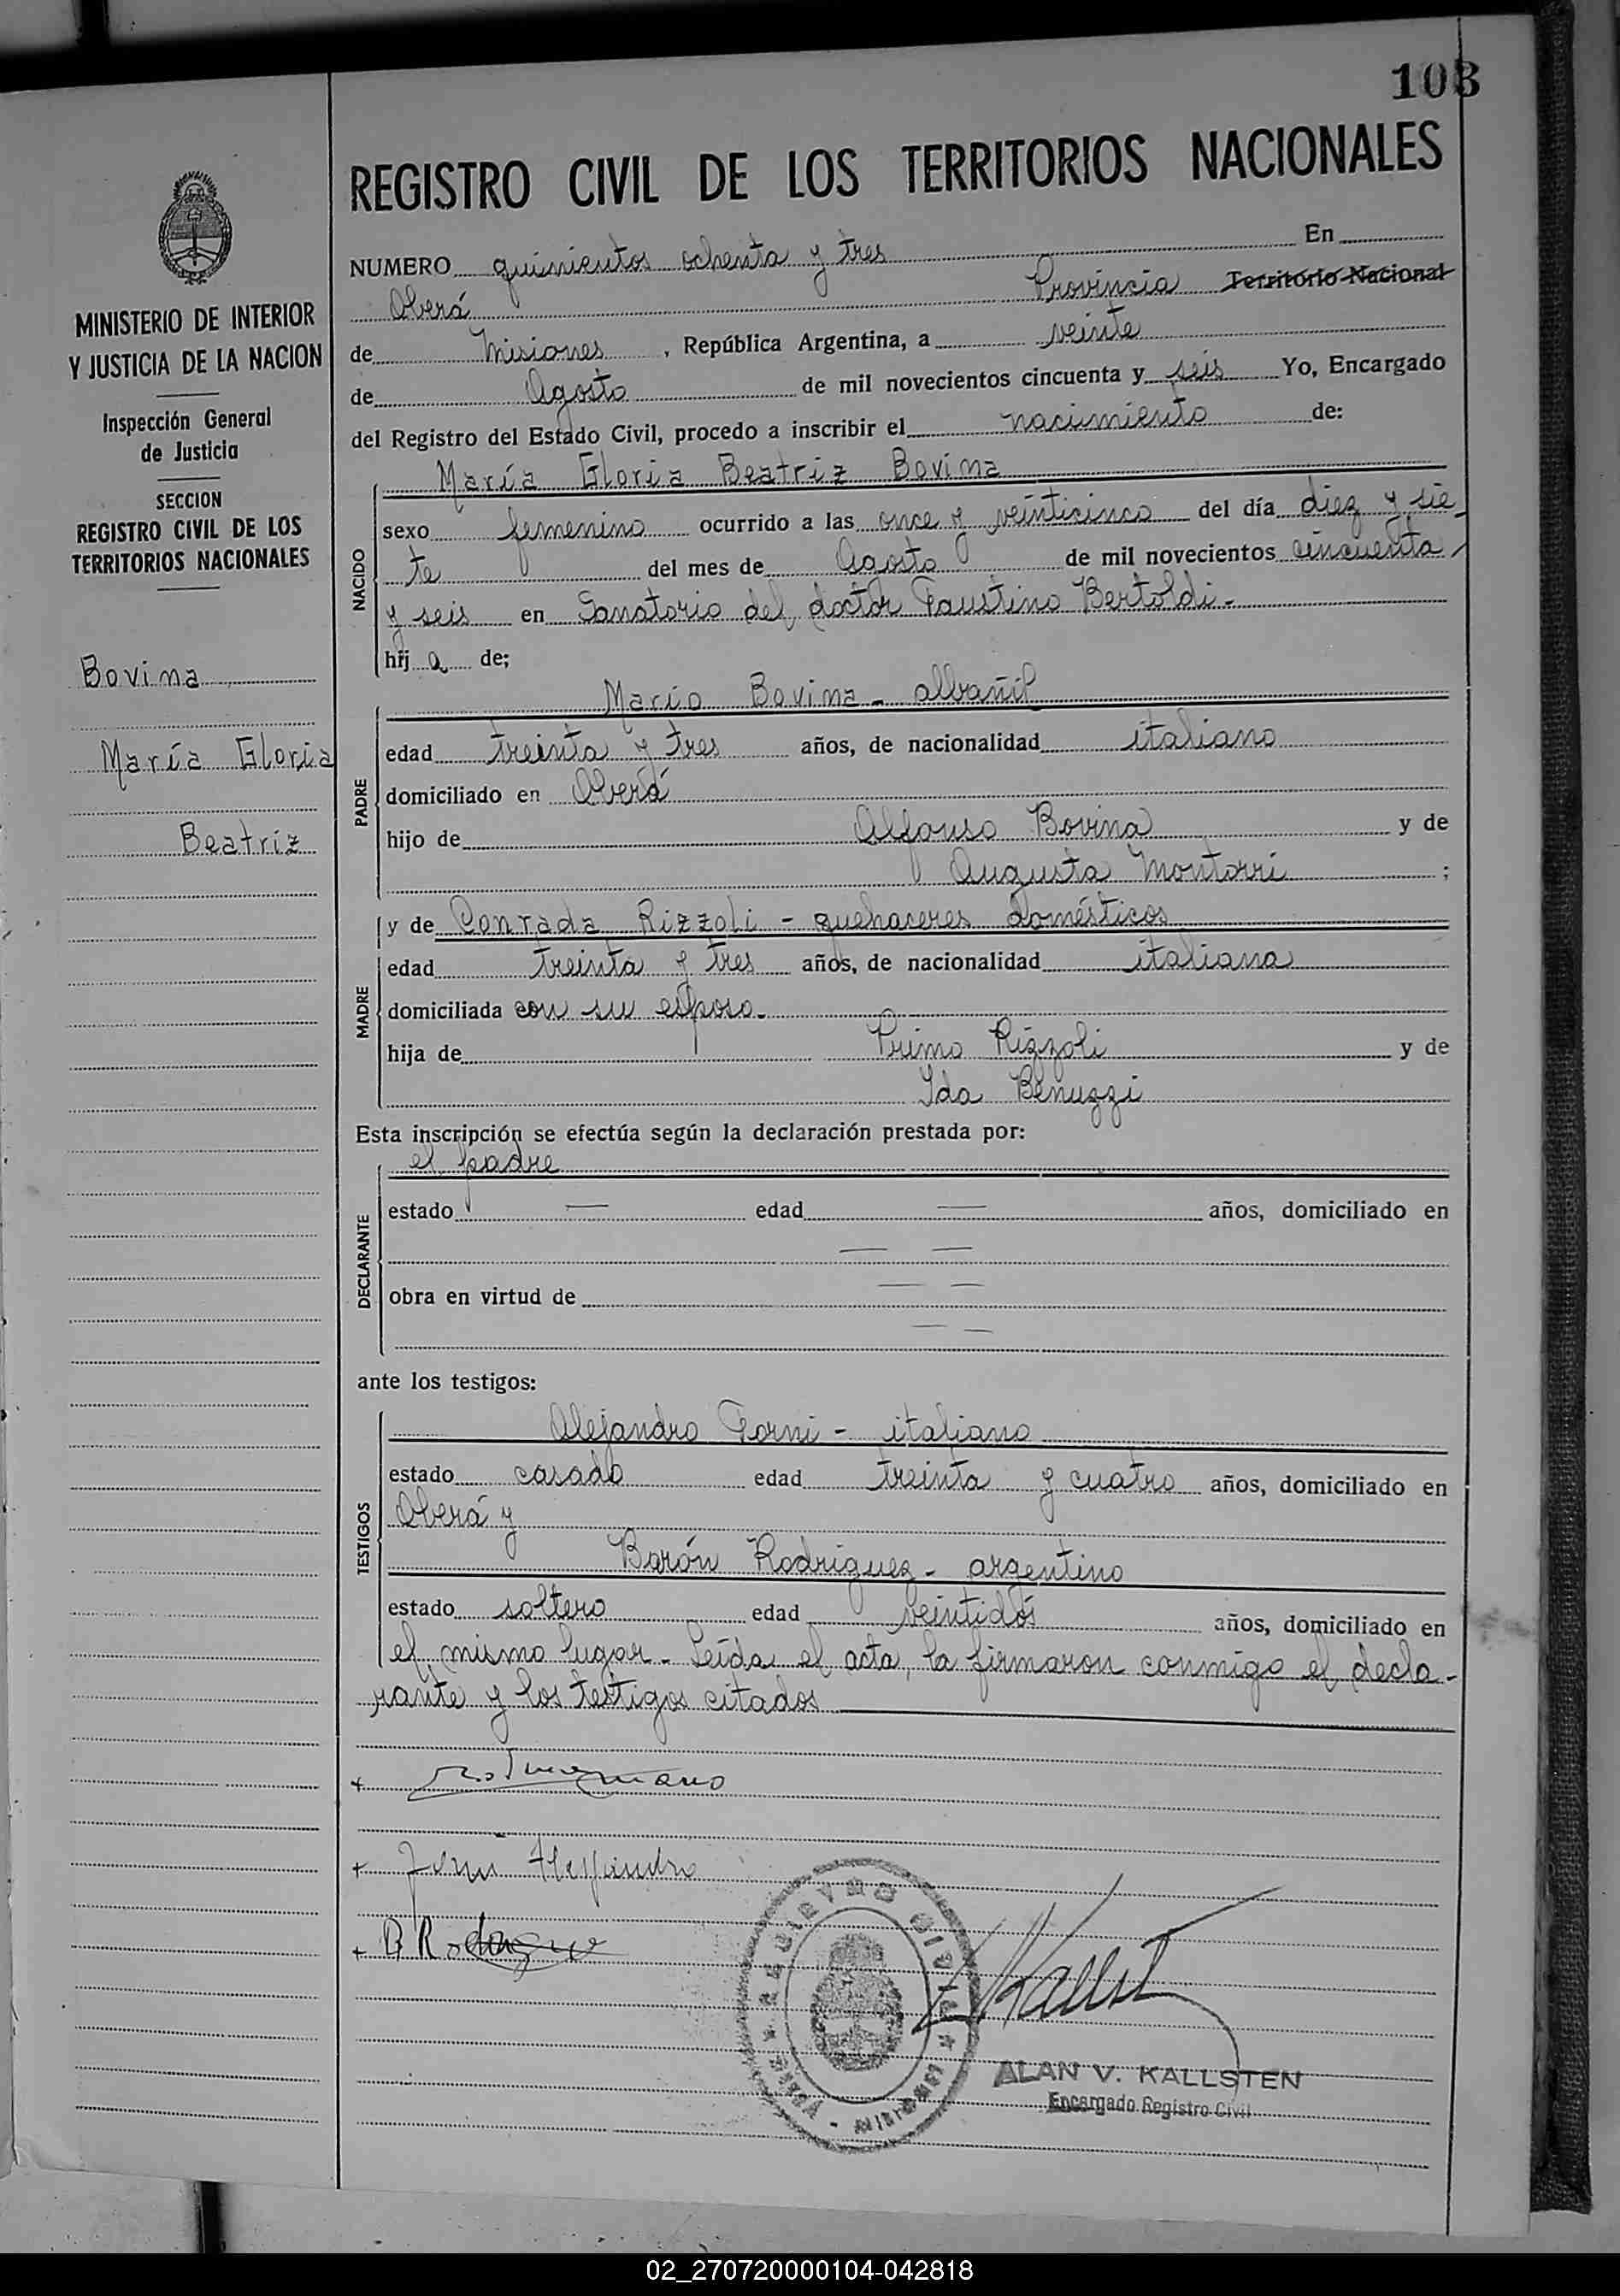 103
REGISTRO CIVIL DE LOS TERRITORIOS NACIONALES
MINISTERIO DE INTERIOR
Y JUSTICIA DE LA NACION
Inspección General
de Justicia
SECCION
REGISTRO CIVIL DE LOS
TERRITORIOS NACIONALES
Bovina
María Gloria
Beatriz
NUMERO quinientos ochenta y tres En
Oberá Provincia Territorio Nacional
de Misiones, República Argentina, a veinte
de Agosto de mil novecientos cincuenta y seis Yo, Encargado
del Registro del Estado Civil, procedo a inscribir el nacimiento de:
NACIDO
María Gloria Beatriz Bovina
sexo femenino ocurrido a las once y veinticinco del día diez y sie-
te del mes de Agosto de mil novecientos cincuenta
y seis en Sanatorio del doctor Faustino Bertoldi-
hij a de;
PADRE
Mario Bovina - albañil
edad treinta y tres años, de nacionalidad italiano
domiciliado en Oberá
hijo de Alfonso Bovina y de
Augusta Montorri ;
MADRE
y de Conrada Rizzoli - quehaceres domésticos
edad treinta y tres años, de nacionalidad italiana
domiciliada con su esposo.
hija de Primo Rizzoli y de
Ida Benuzzi
Esta inscripción se efectúa según la declaración prestada por:
DECLARANTE
el padre
estado — edad — años, domiciliado en
— —
obra en virtud de — —
— —
ante los testigos:
TESTIGOS
Alejandro Forni - italiano
estado casado edad treinta y cuatro años, domiciliado en
Oberá y
Barón Rodriguez - argentino
estado soltero edad veintidós años, domiciliado en
el mismo lugar - Leída el acta, la firmaron conmigo el decla-
rante y los testigos citados
Forni Alessandro
B Rodriguez
REGISTRO CIVIL
OBERA - MISIONES
Kallst
ALAN V. KALLSTEN
Encargado Registro Civil
02_270720000104-042818